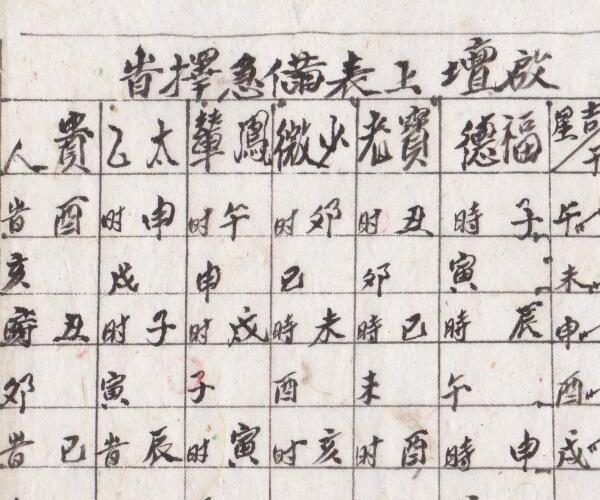 啟壇上表備急擇旹
吉星 福德 寶光 少微 鳳輦 太乙 貴人
午 子時 丑时 卯时 午时 申时 酉旹
未 寅 卯 巳 申 戌 亥
申 辰時 巳時 未時 戌时 子时 丑時
酉 午 未 酉 子 寅 卯
戌 申時 酉时 亥时 寅时 辰旹 巳旹